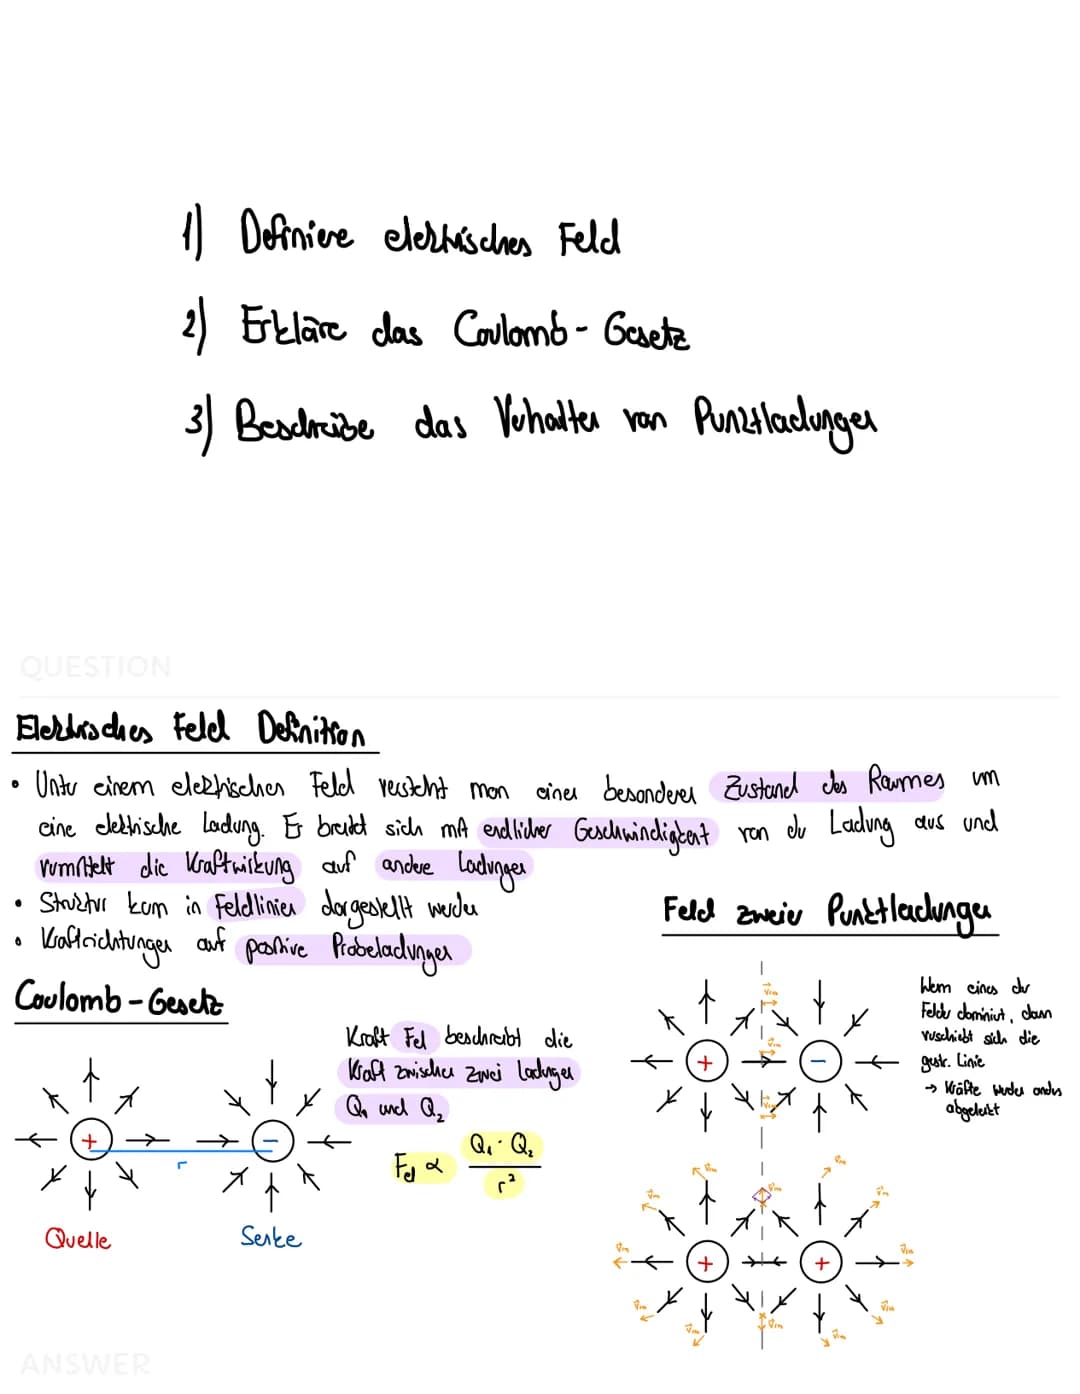 1) Definiere elektrisches Feld
2) Erkläre das Coulomb-Gesetz
3) Beschreibe das Verhalten von Punktladungen
QUESTION
Elektrisches Feld Definition
• Unter einem elektrischen Feld versteht man einen besonderen Zustand des Raumes um
eine elektrische Ladung. Er breitet sich mit endlicher Geschwindigkeit von der Ladung aus und
vermittelt die Kraftwirkung auf andere Ladungen
• Struktur kann in Feldlinien dargestellt werden
• Kraftrichtungen auf positive Probeladungen
Coulomb-Gesetz
+
-
r
Quelle
Senke
Kraft Fel beschreibt die
Kraft zwischen zwei Ladungen
Q₁ und Q₂
Fel ∝ Q₁ · Q₂
r²
Feld zweier Punktladungen
+
-
Wenn eines der
Felder dominiert, dann
verschiebt sich die
gestr. Linie
→ Kräfte werden anders
abgelenkt
+
+
ANSWER